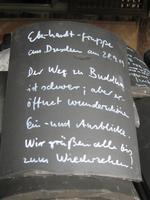 Ekehardt-gruppe
aus Dresden am 28.9.
Der Weg zu Buddha
ist schwer; aber er
öffnet wunderschöne
Ein- und Ausblicke.
Wir grüßen alle bis
zum Wiedersehen!